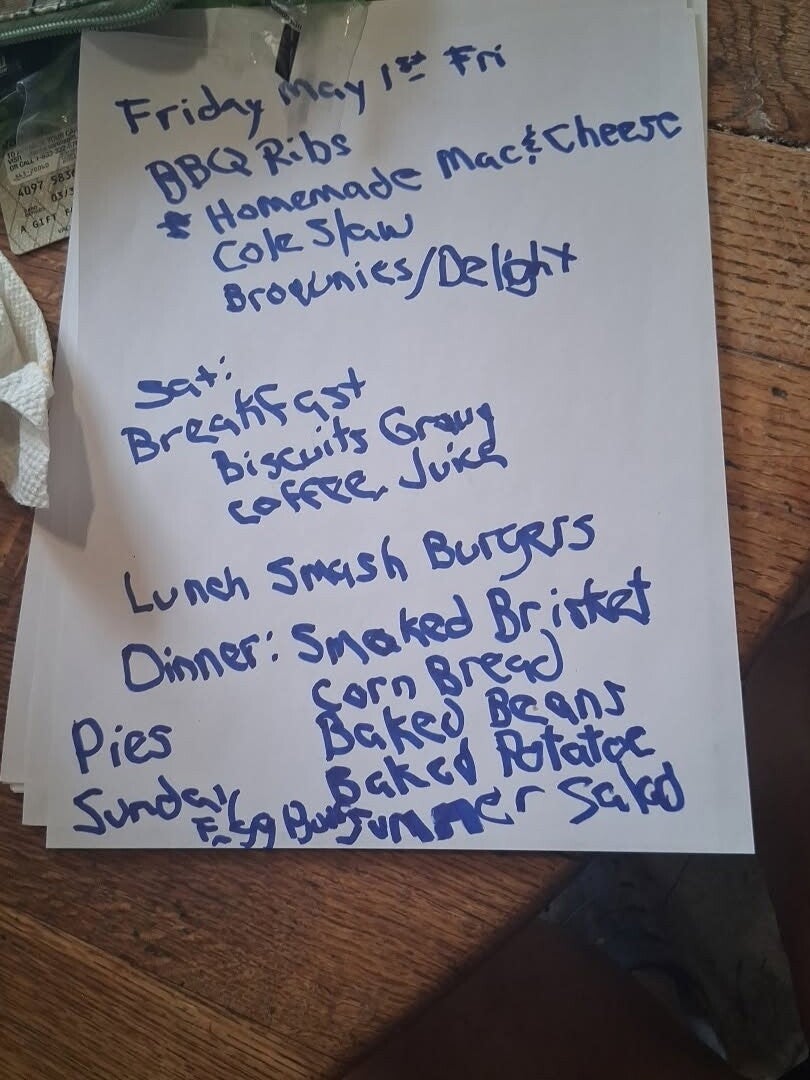 Friday May 1st Fri
BBQ Ribs
* Homemade Mac & Cheese
Cole Slaw
Brownies/Delight
Sat:
Breakfast
Biscuits Gravy
Coffee Juice
Lunch Smash Burgers
Dinner: Smoked Brisket
Corn Bread
Baked Beans
Pies
Baked Potatoe
Sunday
Summer Salad
Egg
4097 983
03/3
A GIFT F